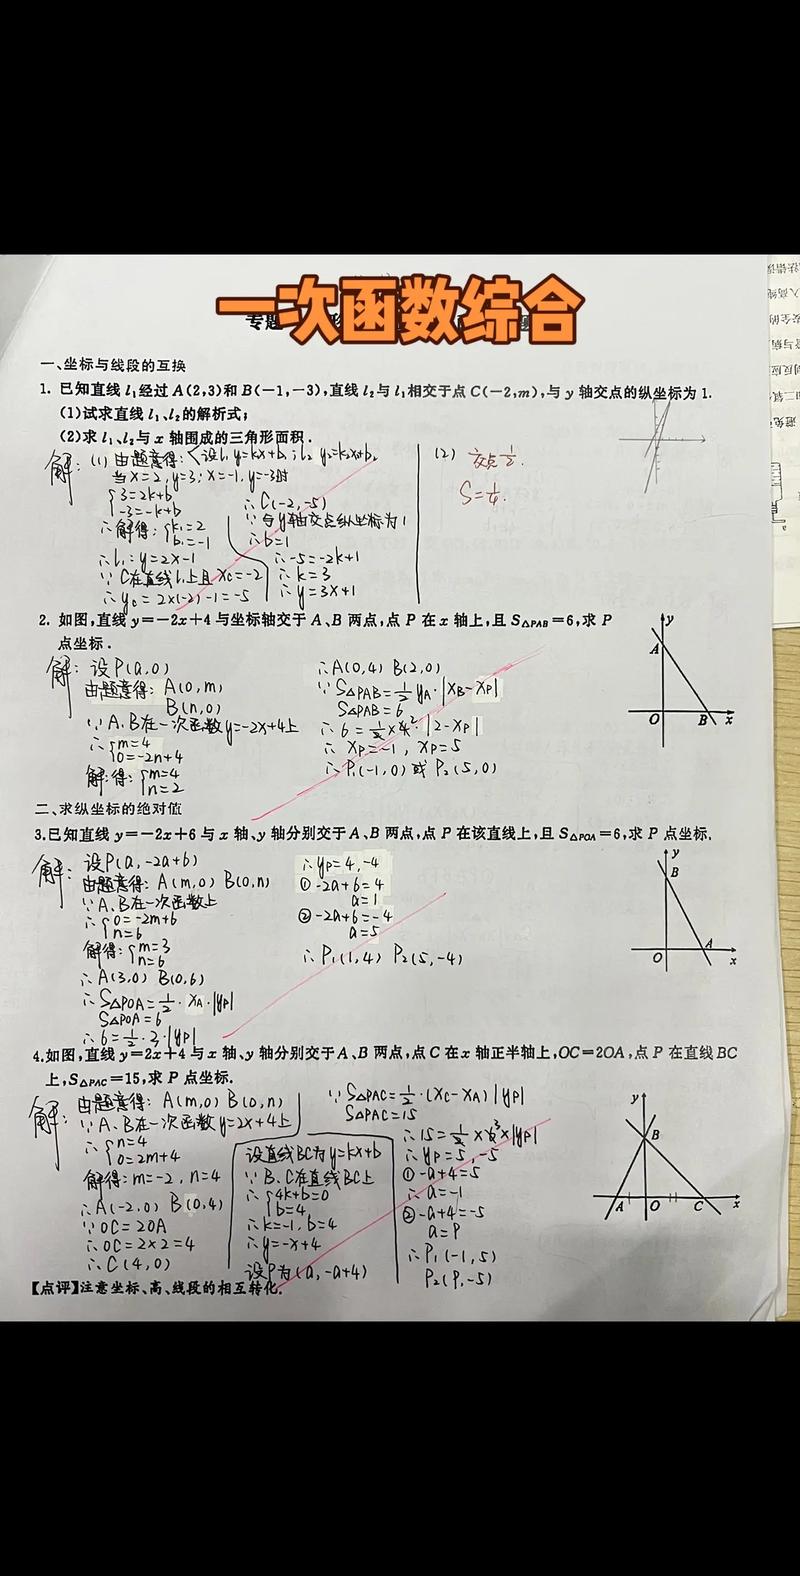 一次函数综合
专题
一、坐标与线段的互换
1. 已知直线 l₁ 经过 A(2,3)和 B(-1,-3),直线 l₂ 与 l₁ 相交于点 C(-2,m),与 y 轴交点的纵坐标为 1.
(1)试求直线 l₁、l₂ 的解析式;
(2)求 l₁、l₂ 与 x 轴围成的三角形面积.
解: (1) 由题意得: 设l₁ y=kx+b, l₂ y₂=k₂x+b₂
当x=2, y=3; x=-1, y=-3时
{3=2k+b
-3=-k+b
∴解得: {k₁=2
b₁=-1
∴l₁: y=2x-1
∵C在直线l₁上且 xc=-2
∴yc=2×(-2)-1=-5
∴C(-2,-5)
∵与y轴交点纵坐标为1
∴b=1
∴-5=-2k+1
∴k=3
∴y=3x+1
(2) 交点 1/2.
S=1/4.
2. 如图,直线 y=-2x+4 与坐标轴交于 A、B 两点,点 P 在 x 轴上,且 S△PAB=6,求 P
点坐标.
y
A
O B x
解: 设P(a,0)
由题意得: A(0,m)
B(n,0)
∵A、B在一次函数y=-2x+4上
∴{m=4
0=-2n+4
解得: {m=4
n=2
∴A(0,4) B(2,0)
∵S△PAB=1/2 yA·|xB-xP|
S△PAB=6
∴6=1/2×4²·|2-xP|
∴xP=-1, xP=5
∴P₁(-1,0) 或 P₂(5,0)
二、求纵坐标的绝对值
3.已知直线 y=-2x+6 与 x 轴、y 轴分别交于 A、B 两点,点 P 在该直线上,且 S△POA=6,求 P 点坐标.
y
B
O A x
解: 设P(a,-2a+6)
由题意得: A(m,0) B(0,n)
∵A、B在一次函数上
∴{0=-2m+6
n=6
解得: {m=3
n=6
∴A(3,0) B(0,6)
∴S△POA=1/2·xA·|yP|
S△POA=6
∴6=1/2·3·|yP|
∴yP=4,-4
①-2a+6=4
a=1
②-2a+6=-4
a=5
∴P₁(1,4) P₂(5,-4)
4.如图,直线 y=2x+4 与 x 轴、y 轴分别交于 A、B 两点,点 C 在 x 轴正半轴上,OC=2OA,点 P 在直线 BC
上,S△PAC=15,求 P 点坐标.
y
B
A O C x
解: 由题意得: A(m,0) B(0,n)
∵A、B在一次函数y=2x+4上
∴{n=4
0=2m+4
解得: m=-2, n=4
∴A(-2,0) B(0,4)
∵OC=2OA
∴OC=2×2=4
∴C(4,0)
设直线BC为y=kx+b
∵B、C在直线BC上
∴{4k+b=0
b=4
∴k=-1, b=4
∴y=-x+4
设P为(a,-a+4)
∵S△PAC=1/2·(xC-xA)|yP|
S△PAC=15
∴15=1/2×6³×|yP|
∴yP=5,-5
①-a+4=5
∴a=-1
②-a+4=-5
a=9
∴P₁(-1,5)
P₂(9,-5)
【点评】注意坐标、高、线段的相互转化.